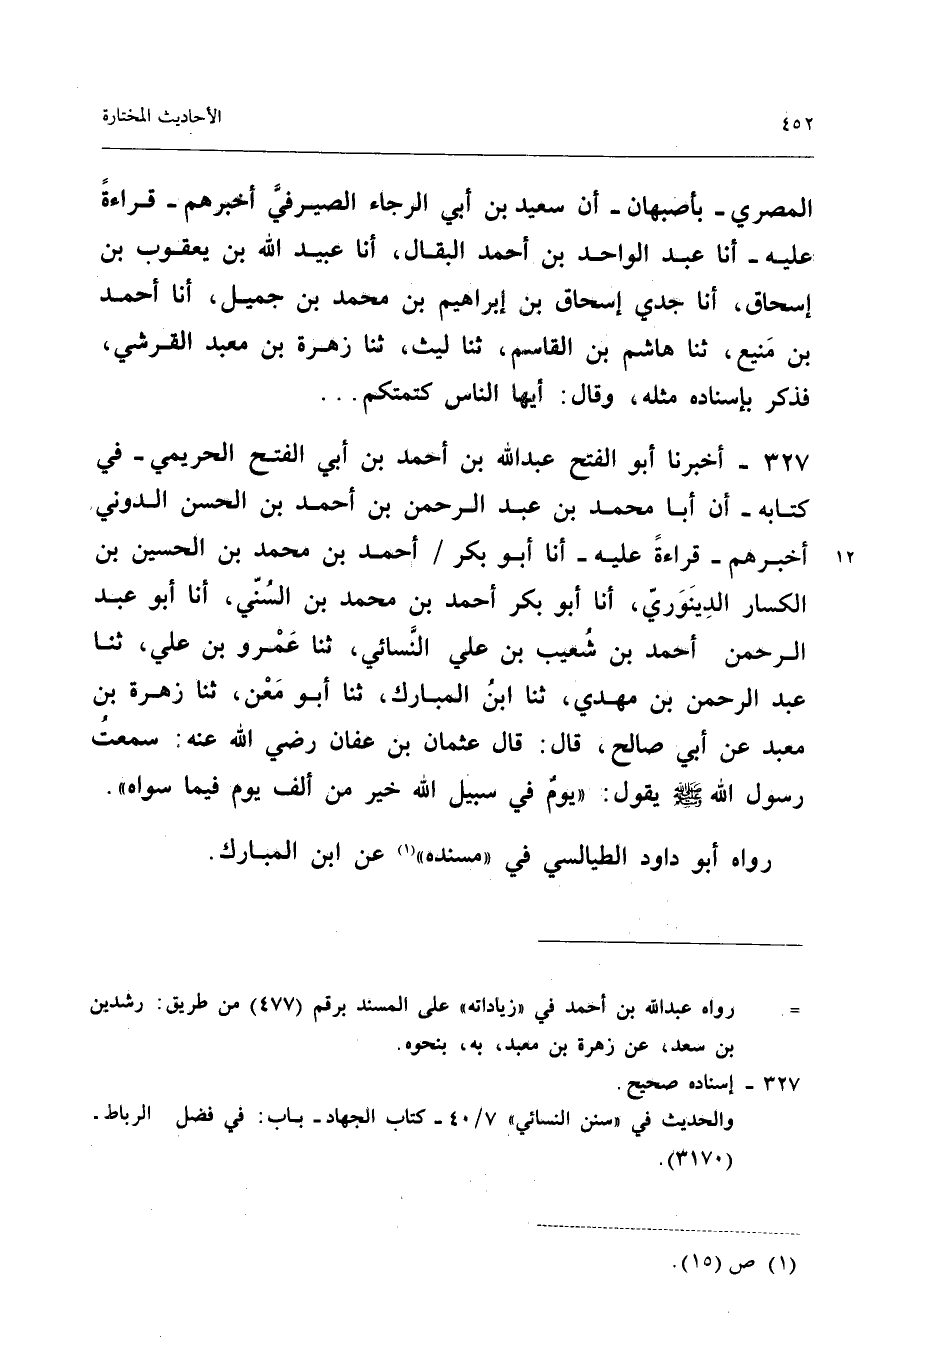 ٤٥٢
الأحاديث المختارة
المصري - بأصبهان - أن سعيد بن أبي الرجاء الصيرفيَّ أخبرهم - قراءةً
عليه - أنا عبد الواحد بن أحمد البقال، أنا عبيد الله بن يعقوب بن
إسحاق، أنا جدي إسحاق بن إبراهيم بن محمد بن جميل، أنا أحمد
بن مَنيع، ثنا هاشم بن القاسم، ثنا ليث، ثنا زهرة بن معبد القرشي،
فذكر بإسناده مثله، وقال: أيها الناس كتمتكم . . .
٣٢٧ - أخبرنا أبو الفتح عبدالله بن أحمد بن أبي الفتح الحريمي - في
كتابه - أن أبا محمد بن عبد الرحمن بن أحمد بن الحسن الدوني
أخبرهم - قراءةً عليه - أنا أبو بكر / أحمد بن محمد بن الحسين بن
١٢
الكسار الدِينَوَريّ، أنا أبو بكر أحمد بن محمد بن السُنّي، أنا أبو عبد
الرحمن أحمد بن شُعيب بن علي النَّسائي، ثنا عَمْرو بن علي، ثنا
عبد الرحمن بن مهدي، ثنا ابنُ المبارك، ثنا أبو مَعْن، ثنا زهرة بن
معبد عن أبي صالح، قال: قال عثمان بن عفان رضي الله عنه: سمعتُ
رسول الله ﷺ يقول: «يومٌ في سبيل الله خير من ألف يوم فيما سواه».
رواه أبو داود الطيالسي في «مسنده»(١) عن ابن المبارك.
= رواه عبدالله بن أحمد في «زياداته» على المسند برقم (٤٧٧) من طريق: رشدين
بن سعد، عن زهرة بن معبد، به، بنحوه.
٣٢٧ - إسناده صحيح.
والحديث في «سنن النسائي» ٤٠/٧ - كتاب الجهاد - باب: في فضل الرباط -
(٣١٧٠).
(١) ص (١٥).